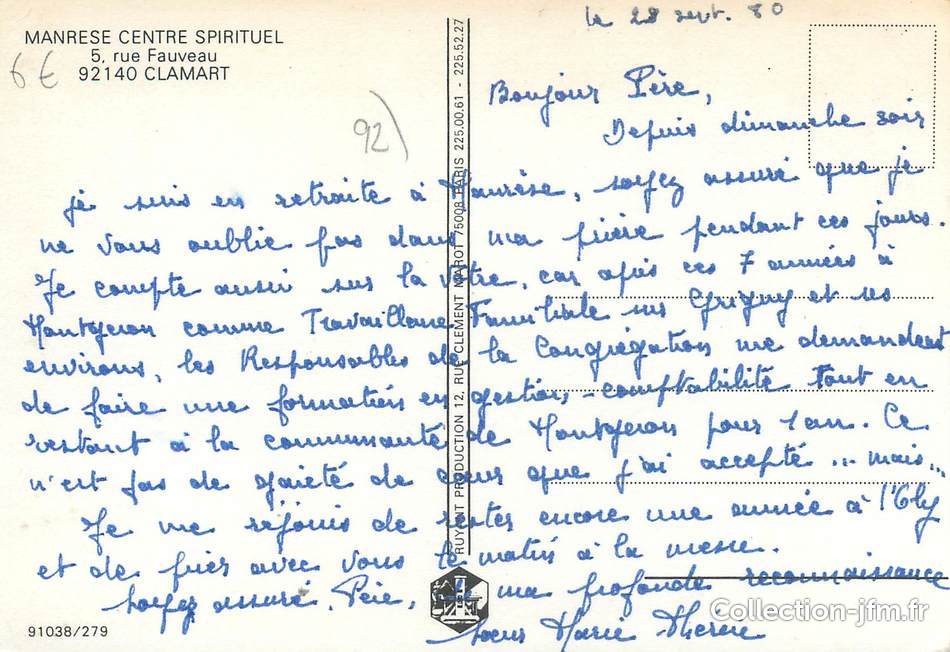 le 28 sept. 80
MANRESE CENTRE SPIRITUEL
5, rue Fauveau
92140 CLAMART
6€
92)
Bonjour Père,
Depuis dimanche soir
je suis en retraite à Manrèse, soyez assuré que je
ne vous oublie pas dans ma prière pendant ces jours.
Je compte aussi sur la vôtre, car après ces 7 années à
Montgeron comme Travailleuse Familiale sur Grigny et ses
environs, les Responsables de la Congrégation me demandent
de faire une formation en gestion, - comptabilité tout en
restant à la communauté de Montgeron pour 1 an. Ce
n'est pas de gaieté de cœur que j'ai accepté ... mais...
Je me réjouis de rester encore une année à l'Oly
et de prier avec vous le matin à la messe.
Soyez assuré, Père, de ma profonde reconnaissance
Sœur Marie Thérèse
RUYANT PRODUCTION 12, RUE CLEMENT MAROT 75008 PARIS 225.00.61 - 225.52.27
91038/279
Collection-jfm.fr